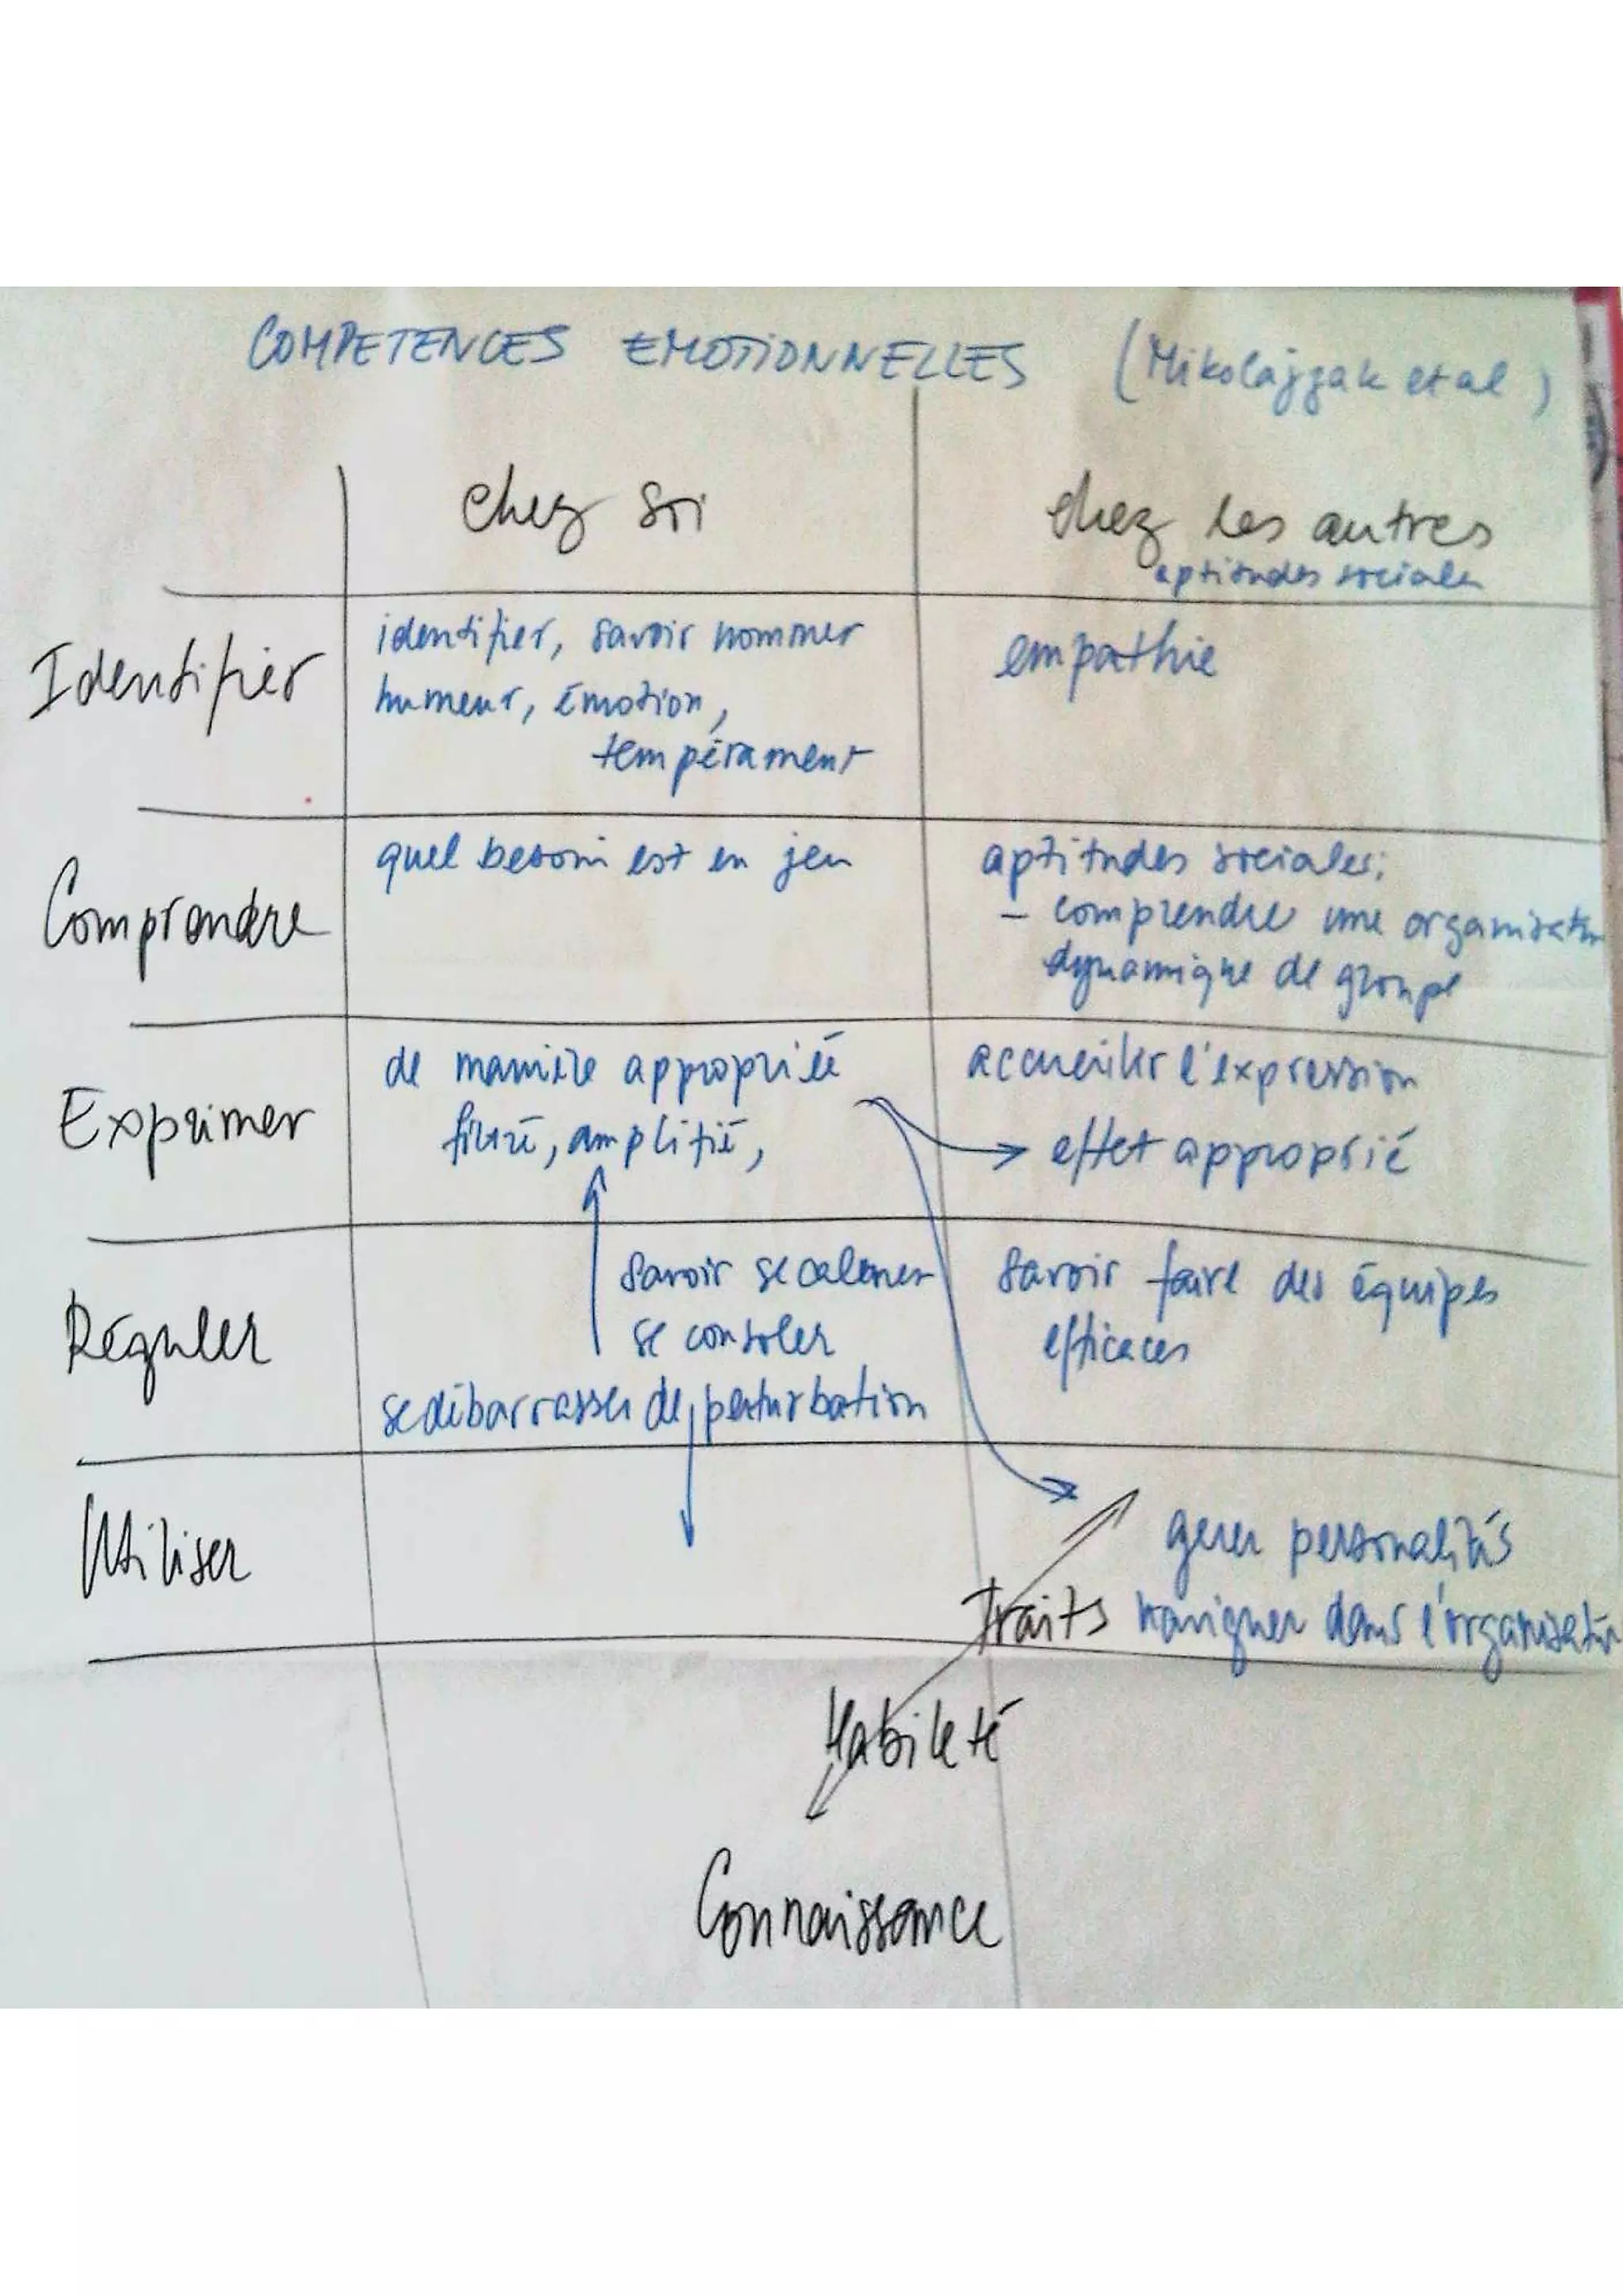 COMPETENCES EMOTIONNELLES (Mikolajzak et al)
chez soi
chez les autres
aptitudes sociales
Identifier
identifier, savoir nommer
humeur, émotion,
tempérament
empathie
Comprendre
quel besoin est en jeu
aptitudes sociales:
- comprendre une organisation
dynamique de groupe
Exprimer
de manière appropriée
filtré, amplifié,
accueillir l'expression
effet approprié
Réguler
savoir se calmer
se consoler
se débarrasser de perturbation
savoir faire des équipes
efficaces
Utiliser
gerer personalités
Traits naviguer dans l'organisation
Habileté
Connaissance